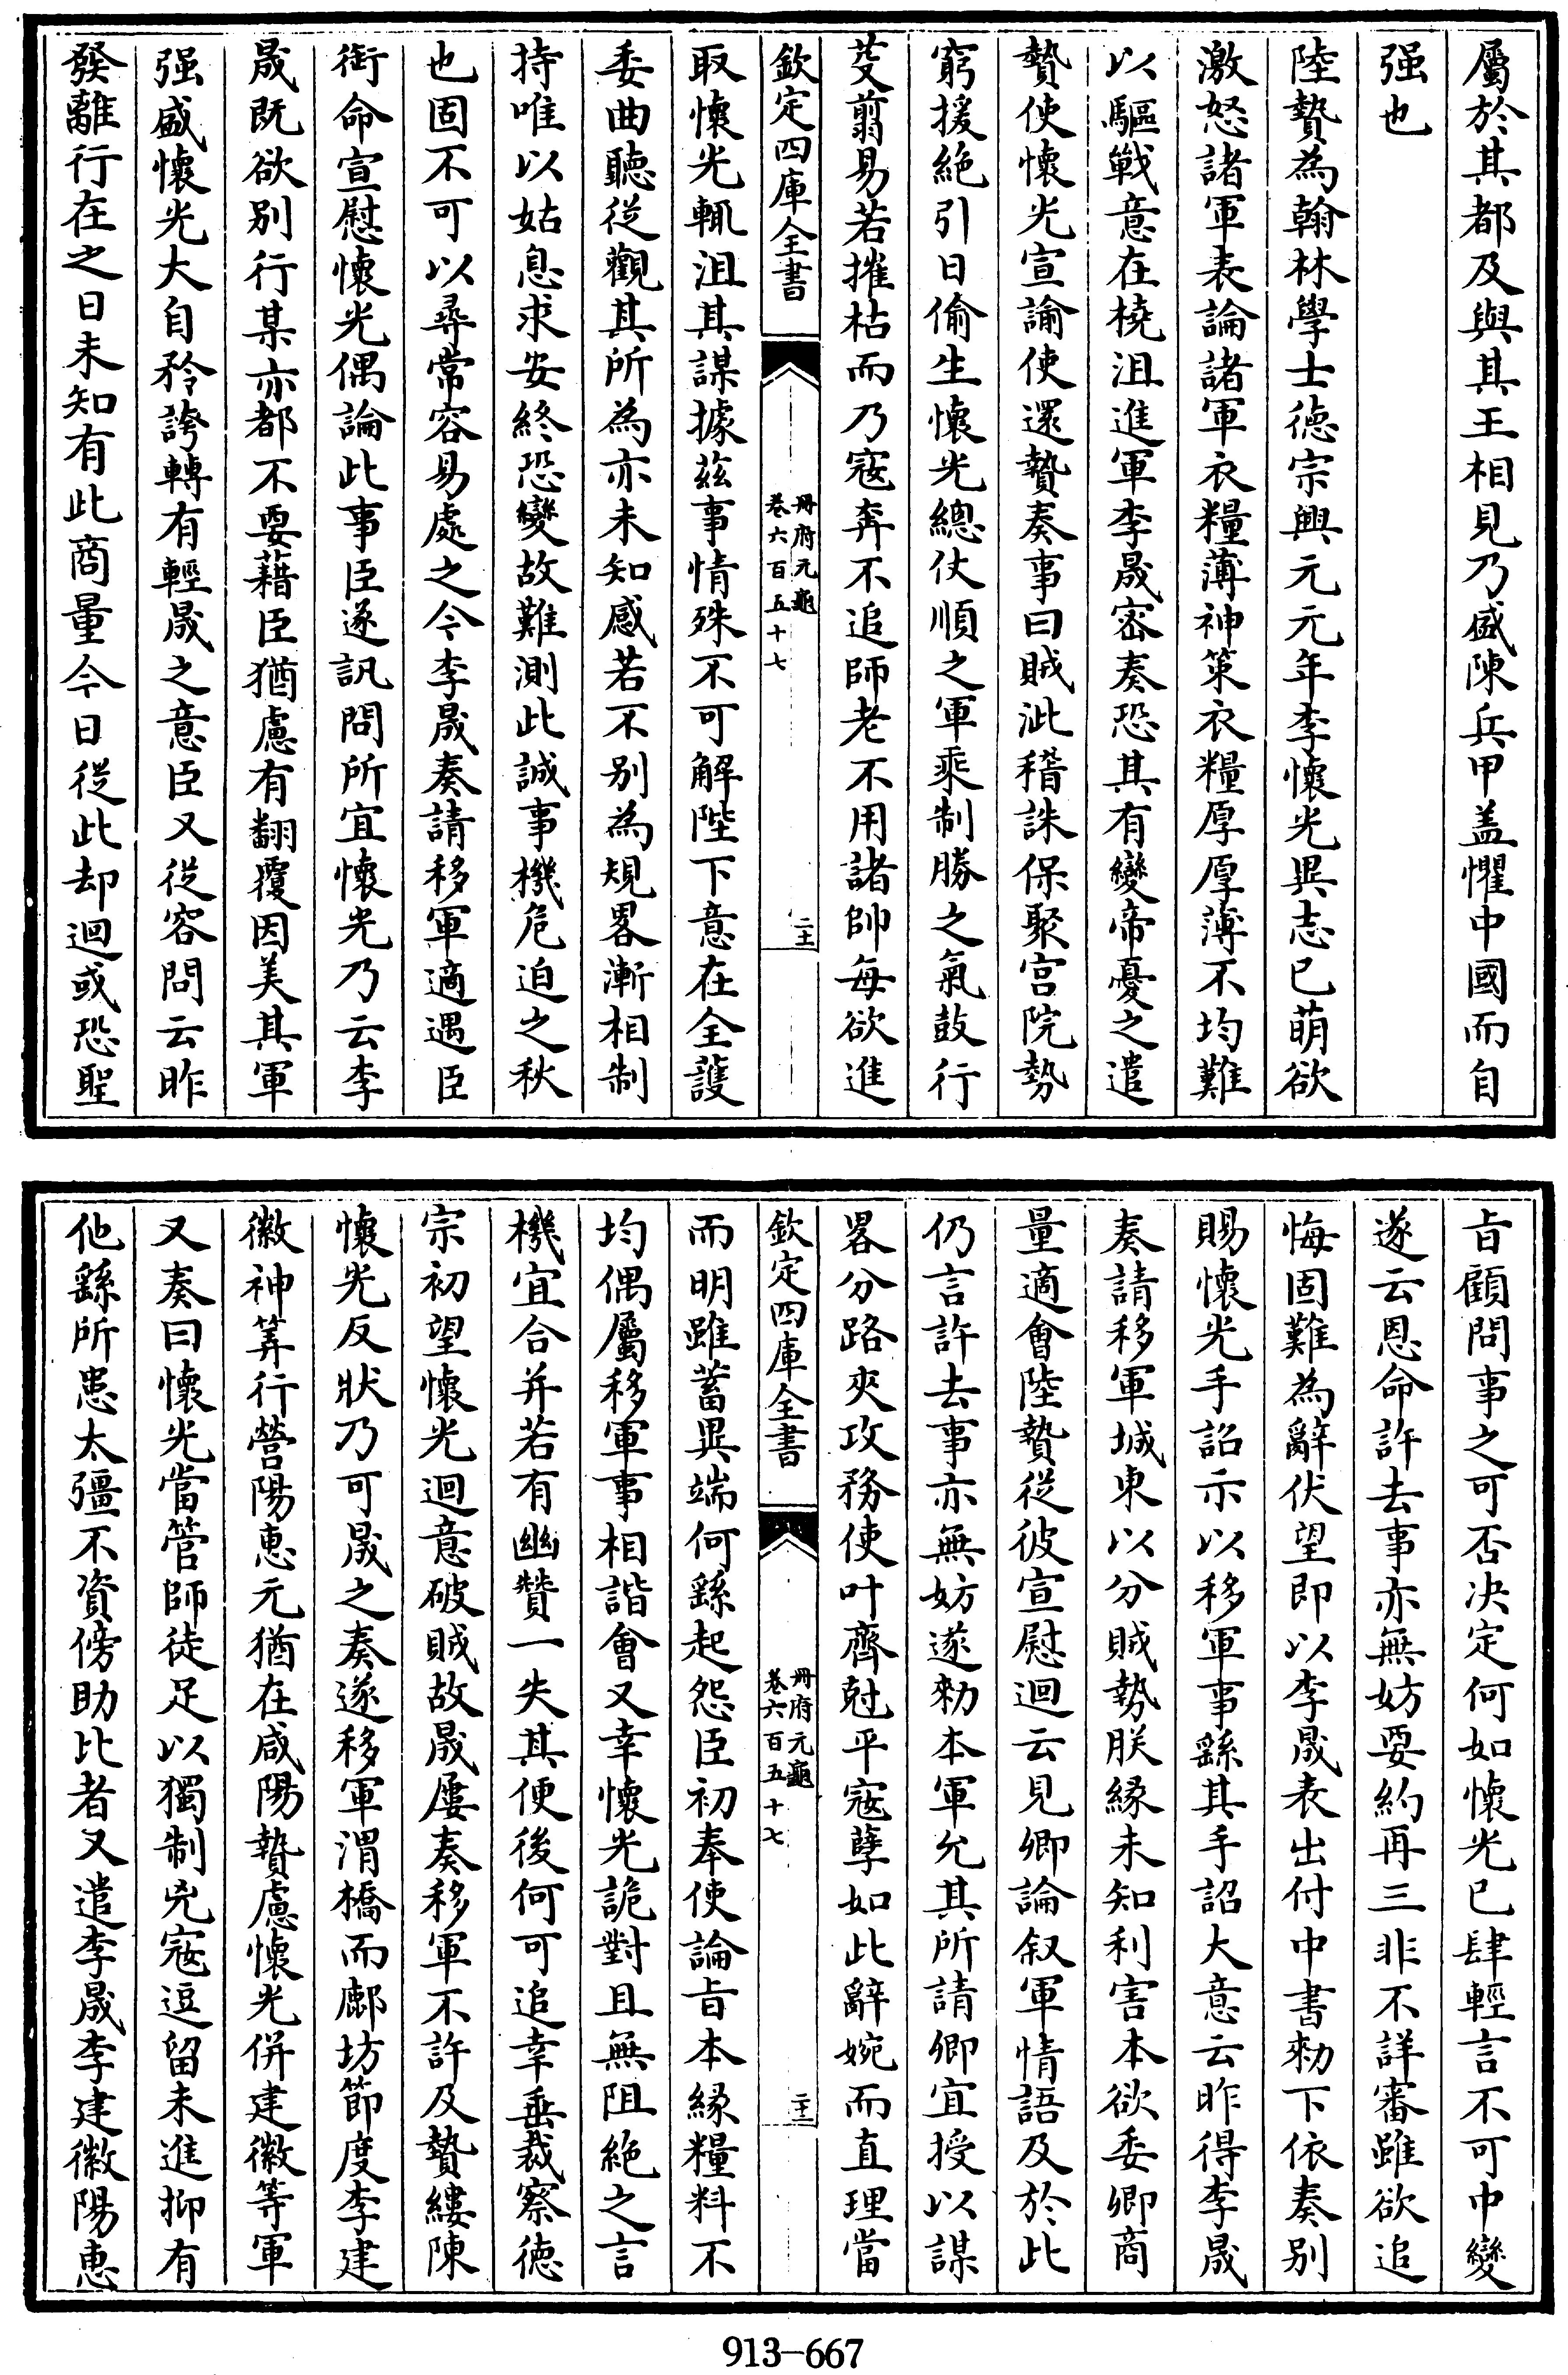 屬於其都及與其王相見乃盛陳兵甲盖懼中國而自
强也
陸贄為翰林學士徳宗興元元年李懷光異志已萌欲
激怒諸軍表論諸軍衣糧薄神策衣糧厚厚薄不均難
以驅戰意在撓沮進軍李晟宻奏恐其有變帝憂之遣
贄使懷光宣諭使還贄奏事曰賊泚稽誅保聚宫院勢
窮援絶引日偷生懷光總仗順之軍乘制勝之氣鼓行
芟翦易若摧枯而乃宼奔不追師老不用諸帥每欲進
欽定四庫全書
冊府元龜
卷六百五十七
二十一
取懷光輒沮其謀據兹事情殊不可解陛下意在全護
委曲聽從觀其所為亦未知感若不别為規畧漸相制
持唯以姑息求安終恐變故難測此誠事機危迫之秋
也固不可以尋常容易處之今李晟奏請移軍適遇臣
銜命宣慰懷光偶論此事臣遂訊問所宜懷光乃云李
晟既欲别行某亦都不要藉臣猶慮有翻覆因美其軍
强盛懷光大自矜誇轉有輕晟之意臣又從容問云昨
發離行在之日未知有此商量今日從此却迴或恐聖
㫖顧問事之可否决定何如懷光已肆輕言不可中變
遂云恩命許去事亦無妨要約再三非不詳審雖欲追
悔固難為辭伏望即以李晟表出付中書勑下依奏别
賜懷光手詔示以移軍事繇其手詔大意云昨得李晟
奏請移軍城東以分賊勢朕縁未知利害本欲委卿商
量適會陸贄從彼宣慰迴云見卿論叙軍情語及於此
仍言許去事亦無妨遂勑本軍允其所請卿宜授以謀
畧分路夾攻務使叶齊尅平宼孽如此辭婉而直理當
欽定四庫全書
冊府元龜
卷六百五十七
二十二
而明雖蓄異端何繇起怨臣初奉使論㫖本縁糧料不
均偶屬移軍事相諧會又幸懷光詭對且無阻絶之言
機宜合并若有幽贊一失其便後何可追幸垂裁察徳
宗初望懷光迴意破賊故晟屢奏移軍不許及贄縷陳
懷光反狀乃可晟之奏遂移軍渭橋而鄜坊節度李建
徽神筭行營陽惠元猶在咸陽贄慮懷光併建徽等軍
又奏曰懷光當管師徒足以獨制兇宼逗留未進抑有
他繇所患太彊不資傍助比者又遣李晟李建徽陽惠
913-667